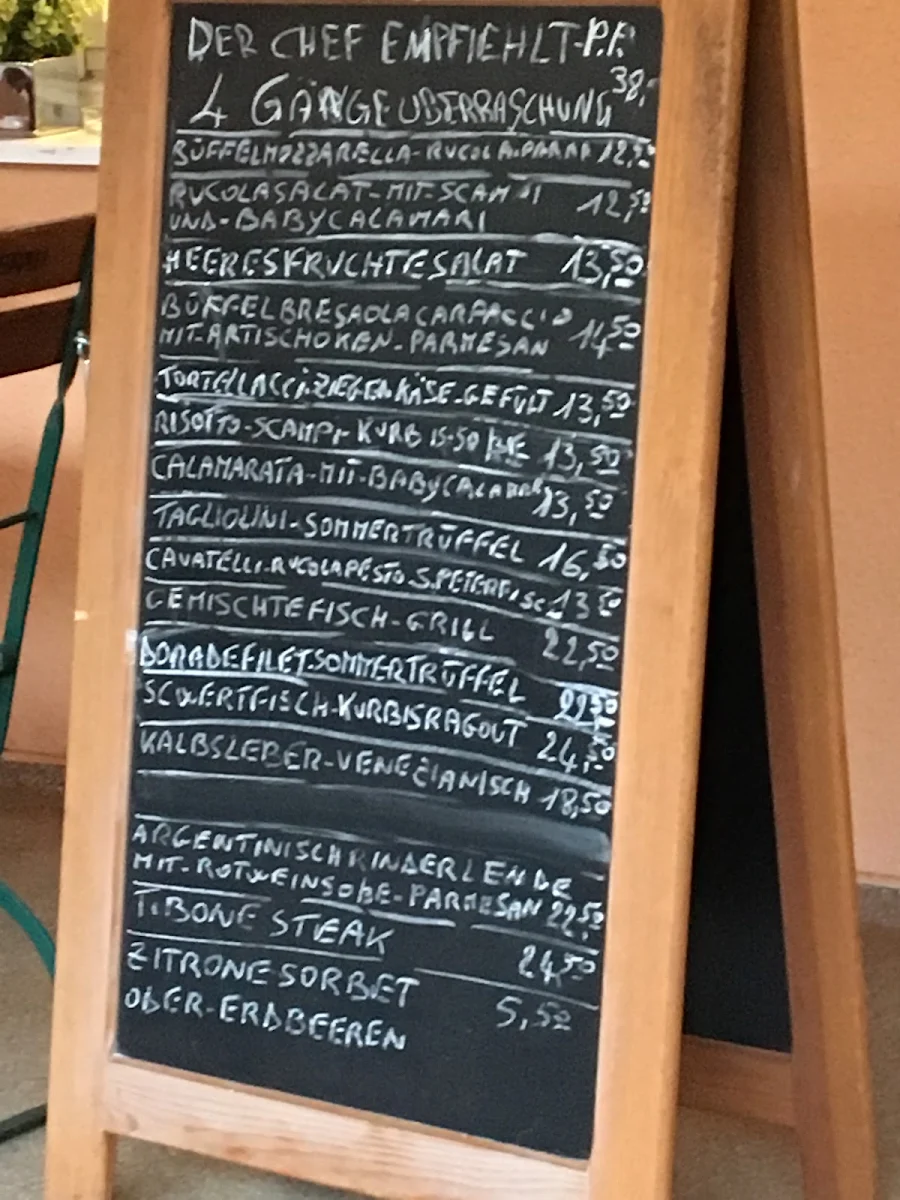 DER CHEF EMPFIEHLT-P.P.
4 GÄNGE UBERRASCHUNG 38,-
BÜFFELMOZZARELLA-RUCOLA-PARMA 12,50
RUCOLASALAT-MIT-SCAMPI
UND-BABYCALAMARI 12,50
MEERESFRUCHTESALAT 13,50
BÜFFELBRESAOLACARPACCIO
MIT-ARTISCHOKEN-PARMESAN 14,50
TORTELLACCI-ZIEGENKÄSE-GEFÜLT 13,50
RISOTTO-SCAMPI-KURBISS 13,50
CALAMARATA-MIT-BABYCALAMARI 13,50
TAGLIOLINI-SOMMERTRÜFFEL 16,50
CAVATELLI-RUCOLAPESTO-S.PETERFISCH 13,50
GEMISCHTEFISCH-GRILL 22,50
DORADEFILET-SOMMERTRÜFFEL 22,50
SCWERTFISCH-KURBISRAGOUT 24,50
KALBSLEBER-VENEZIANISCH 18,50
ARGENTINISCHRINDERLENDE
MIT-ROTWEINSOßE-PARMESAN 22,50
T.BONE STEAK 24,50
ZITRONESORBET 5,50
ODER-ERDBEEREN